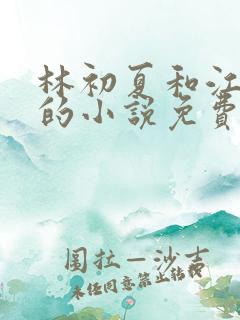 林初夏和江
的小说免费
围拉—沙吉
未经同意禁止转载